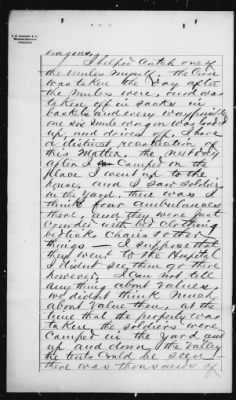 wagons,
I helped catch one of
the mules myself. the Corn
was taken the day after
the mules were, and was
taken off in sacks in
baskets and every way possible
one six mule wagon was loaded
up, and driven off. I have
a distinct recollection of
this Matter. the next day
after I Camped on the
place I went up to the
house, and I saw soldiers
in the Yard. there was I
think four ambulances
there, and they were just
crowded with bed Clothing
bedticks Chairs & other
things — I suppose that
they went to the Hospital
I didn't see them go there
however, I Can not tell
anything about values,
we didn't think Much
about value then, at the
time that the property was
taken the soldiers were
Camped in the Yard and
up and down the valley
the tents could be seen —
there was thousands of